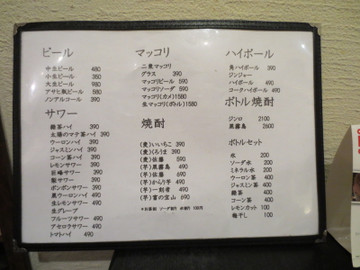 ビール
中生ビール 480
小生ビール 350
大生ビール 980
アサヒ瓶ビール 580
ノンアルコール 390
サワー
緑茶ハイ 390
太陽のマテ茶ハイ 390
ウーロンハイ 390
ジャスミンハイ 390
コーン茶ハイ 390
レモンサワー 390
巨峰サワー 390
梅サワー 390
ポンポンサワー 490
黒ウーロンハイ 490
生レモンサワー 490
生グレープ
フルーツサワー 490
アセロラサワー 490
トマトハイ 490
マッコリ
二東マッコリ
グラス 390
マッコリビール 390
マッコリソーダ 390
マッコリ(カメ) 1580
生マッコリ(ボトル) 1580
焼酎
(麦)いいちこ 390
(麦)くろうま 390
(麦)佐藤 590
(芋)黒霧島 390
(芋)佐藤 690
(芋)からり芋 490
(芋)一刻者 490
(芋)富の宝山 490
ハイボール
角ハイボール 390
ジンジャー
ハイボール 490
コークハイボール 490
ボトル焼酎
ジンロ 2100
黒霧島 2600
ボトルセット
水 200
ソーダ水 200
ミネラル水 200
ウーロン茶 200
ジャスミン茶 200
緑茶 200
コーン茶 200
レモンカット 100
梅干し 100